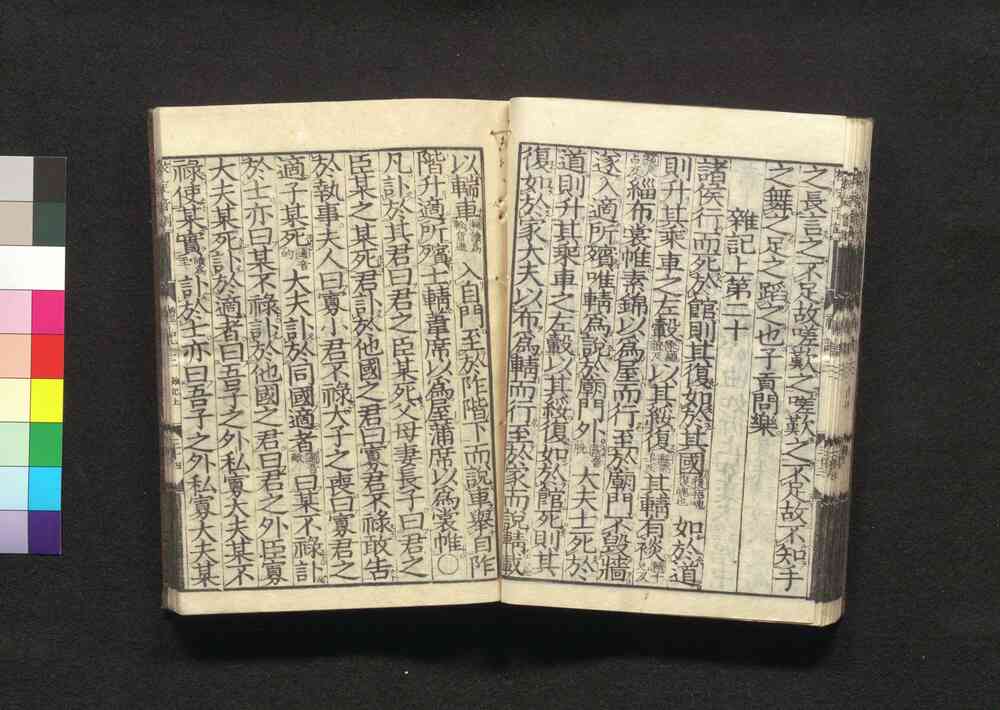 之長言之不足故嗟歎之嗟歎之不足故不知手
之舞之足之蹈之也子貢問樂
雜記上第二十
諸侯行而死於館則其復如於其國如於道
則升其乘車之左轂以其綏復其輤有裧
緇布裳帷素錦以爲屋而行至於廟門不毀牆
遂入適所殯唯輤爲說於廟門外大夫士死於
道則升其乘車之左轂以其綏復如於館死則其
復如於家大夫以布爲輤而行至於家而說輤載
以輲車入自門至於阼階下而說車舉自阼
階升適所殯士輤葦席以爲屋蒲席以爲裳帷○
凡訃於其君曰君之臣某死父母妻長子曰君之
臣某之某死君訃於他國之君曰寡君不祿敢告
於執事夫人曰寡小君不祿大子之喪曰寡君之
適子某死大夫訃於同國適者曰某不祿訃
於士亦曰某不祿訃於他國之君曰君之外臣寡
大夫某死訃於適者曰吾子之外私寡大夫某不
祿使某實訃於士亦曰吾子之外私寡大夫某